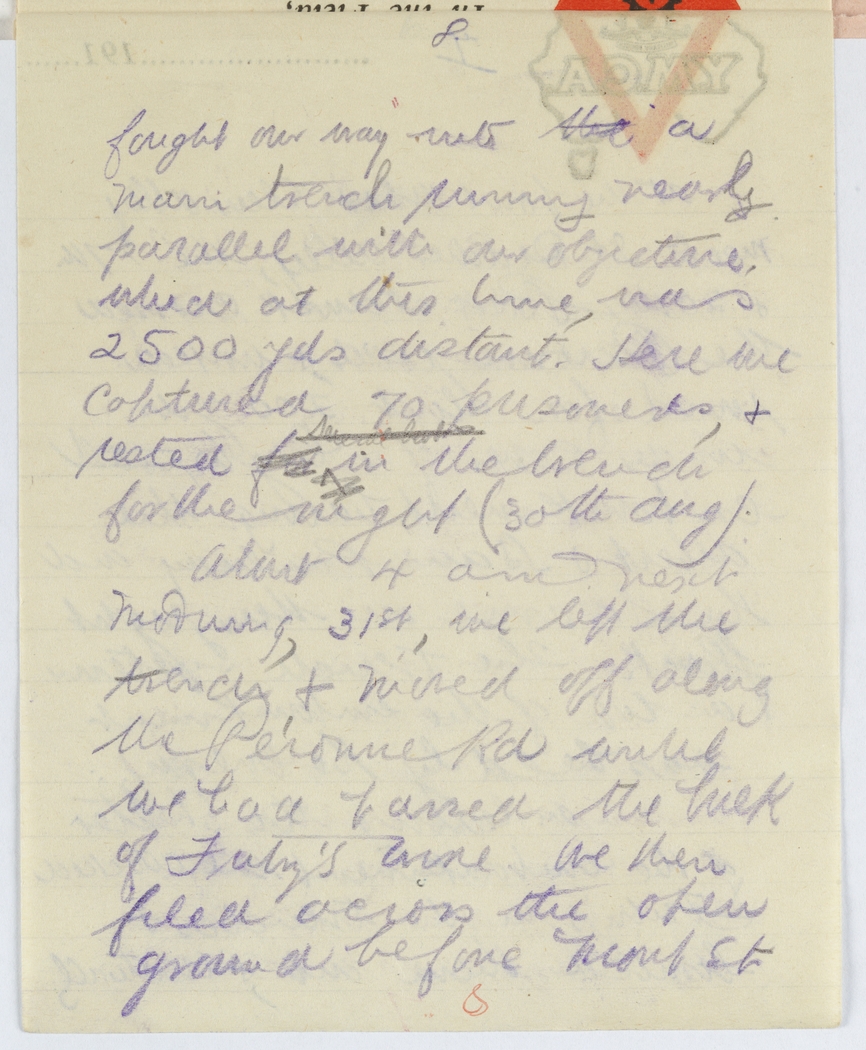 In the Field,
8.
191
ARMY
fought our way into the a
main trench running nearly
parallel with our objective,
which at this time, was
2500 yds distant. Here we
captured 70 prisoners, +
rested in the trench
for the night (30th Aug).
About 4 am next
morning, 31st, we left the
trench + moved off along
the Péronne Rd until
we had passed the brick
of Fritz's line We then
filed across the open
ground before Mont St
8